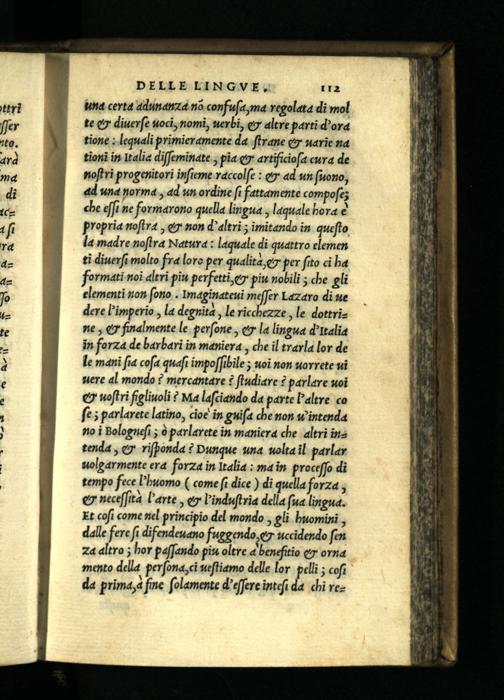 DELLE LINGVE. 112
una certa adunanza nō confusa, ma regolata di mol
te & diverse uoci, nomi, uerbi, & altre parti d'ora
tione : lequali primieramente da strane & uarie na
tioni in Italia disseminate, pia & artificiosa cura de
nostri progenitori insieme raccolse : & ad un suono,
ad una norma, ad un ordine si fattamente compose;
che essi ne formarono quella lingua, laquale hora è
propria nostra, & non d'altri; imitando in questo
la madre nostra Natura: laquale di quattro elemen
ti diuersi molto fra loro per qualità, & per sito ci ha
formati noi altri piu perfetti, & piu nobili; che gli
elementi non sono. Imaginateui messer Lazaro di ue
dere l'imperio, la degnità, le ricchezze, le dottri=
ne, & finalmente le persone, & la lingua d'Italia
in forza de barbari in maniera, che il trarla lor de
le mani sia cosa quasi impossibile; uoi non uorrete ui
uere al mondo? mercantare? studiare? parlare uoi
& uostri figliuoli? Ma lasciando da parte l'altre co
se; parlarete latino, cioè in guisa che non u'intenda
no i Bolognesi; ò parlarete in maniera che altri in=
tenda, & risponda? Dunque una uolta il parlar
uolgarmente era forza in Italia: ma in processo di
tempo fece l'huomo (come si dice) di quella forza,
& necessità l'arte, & l'industria della sua lingua.
Et cosi come nel principio del mondo, gli huomini,
dalle fere si difendeuano fuggendo, & uccidendo sen
za altro; hor passando piu oltre à benefitio & orna
mento della persona, ci uestiamo delle lor pelli; cosi
da prima, à fine solamente d'essere intesi da chi re=